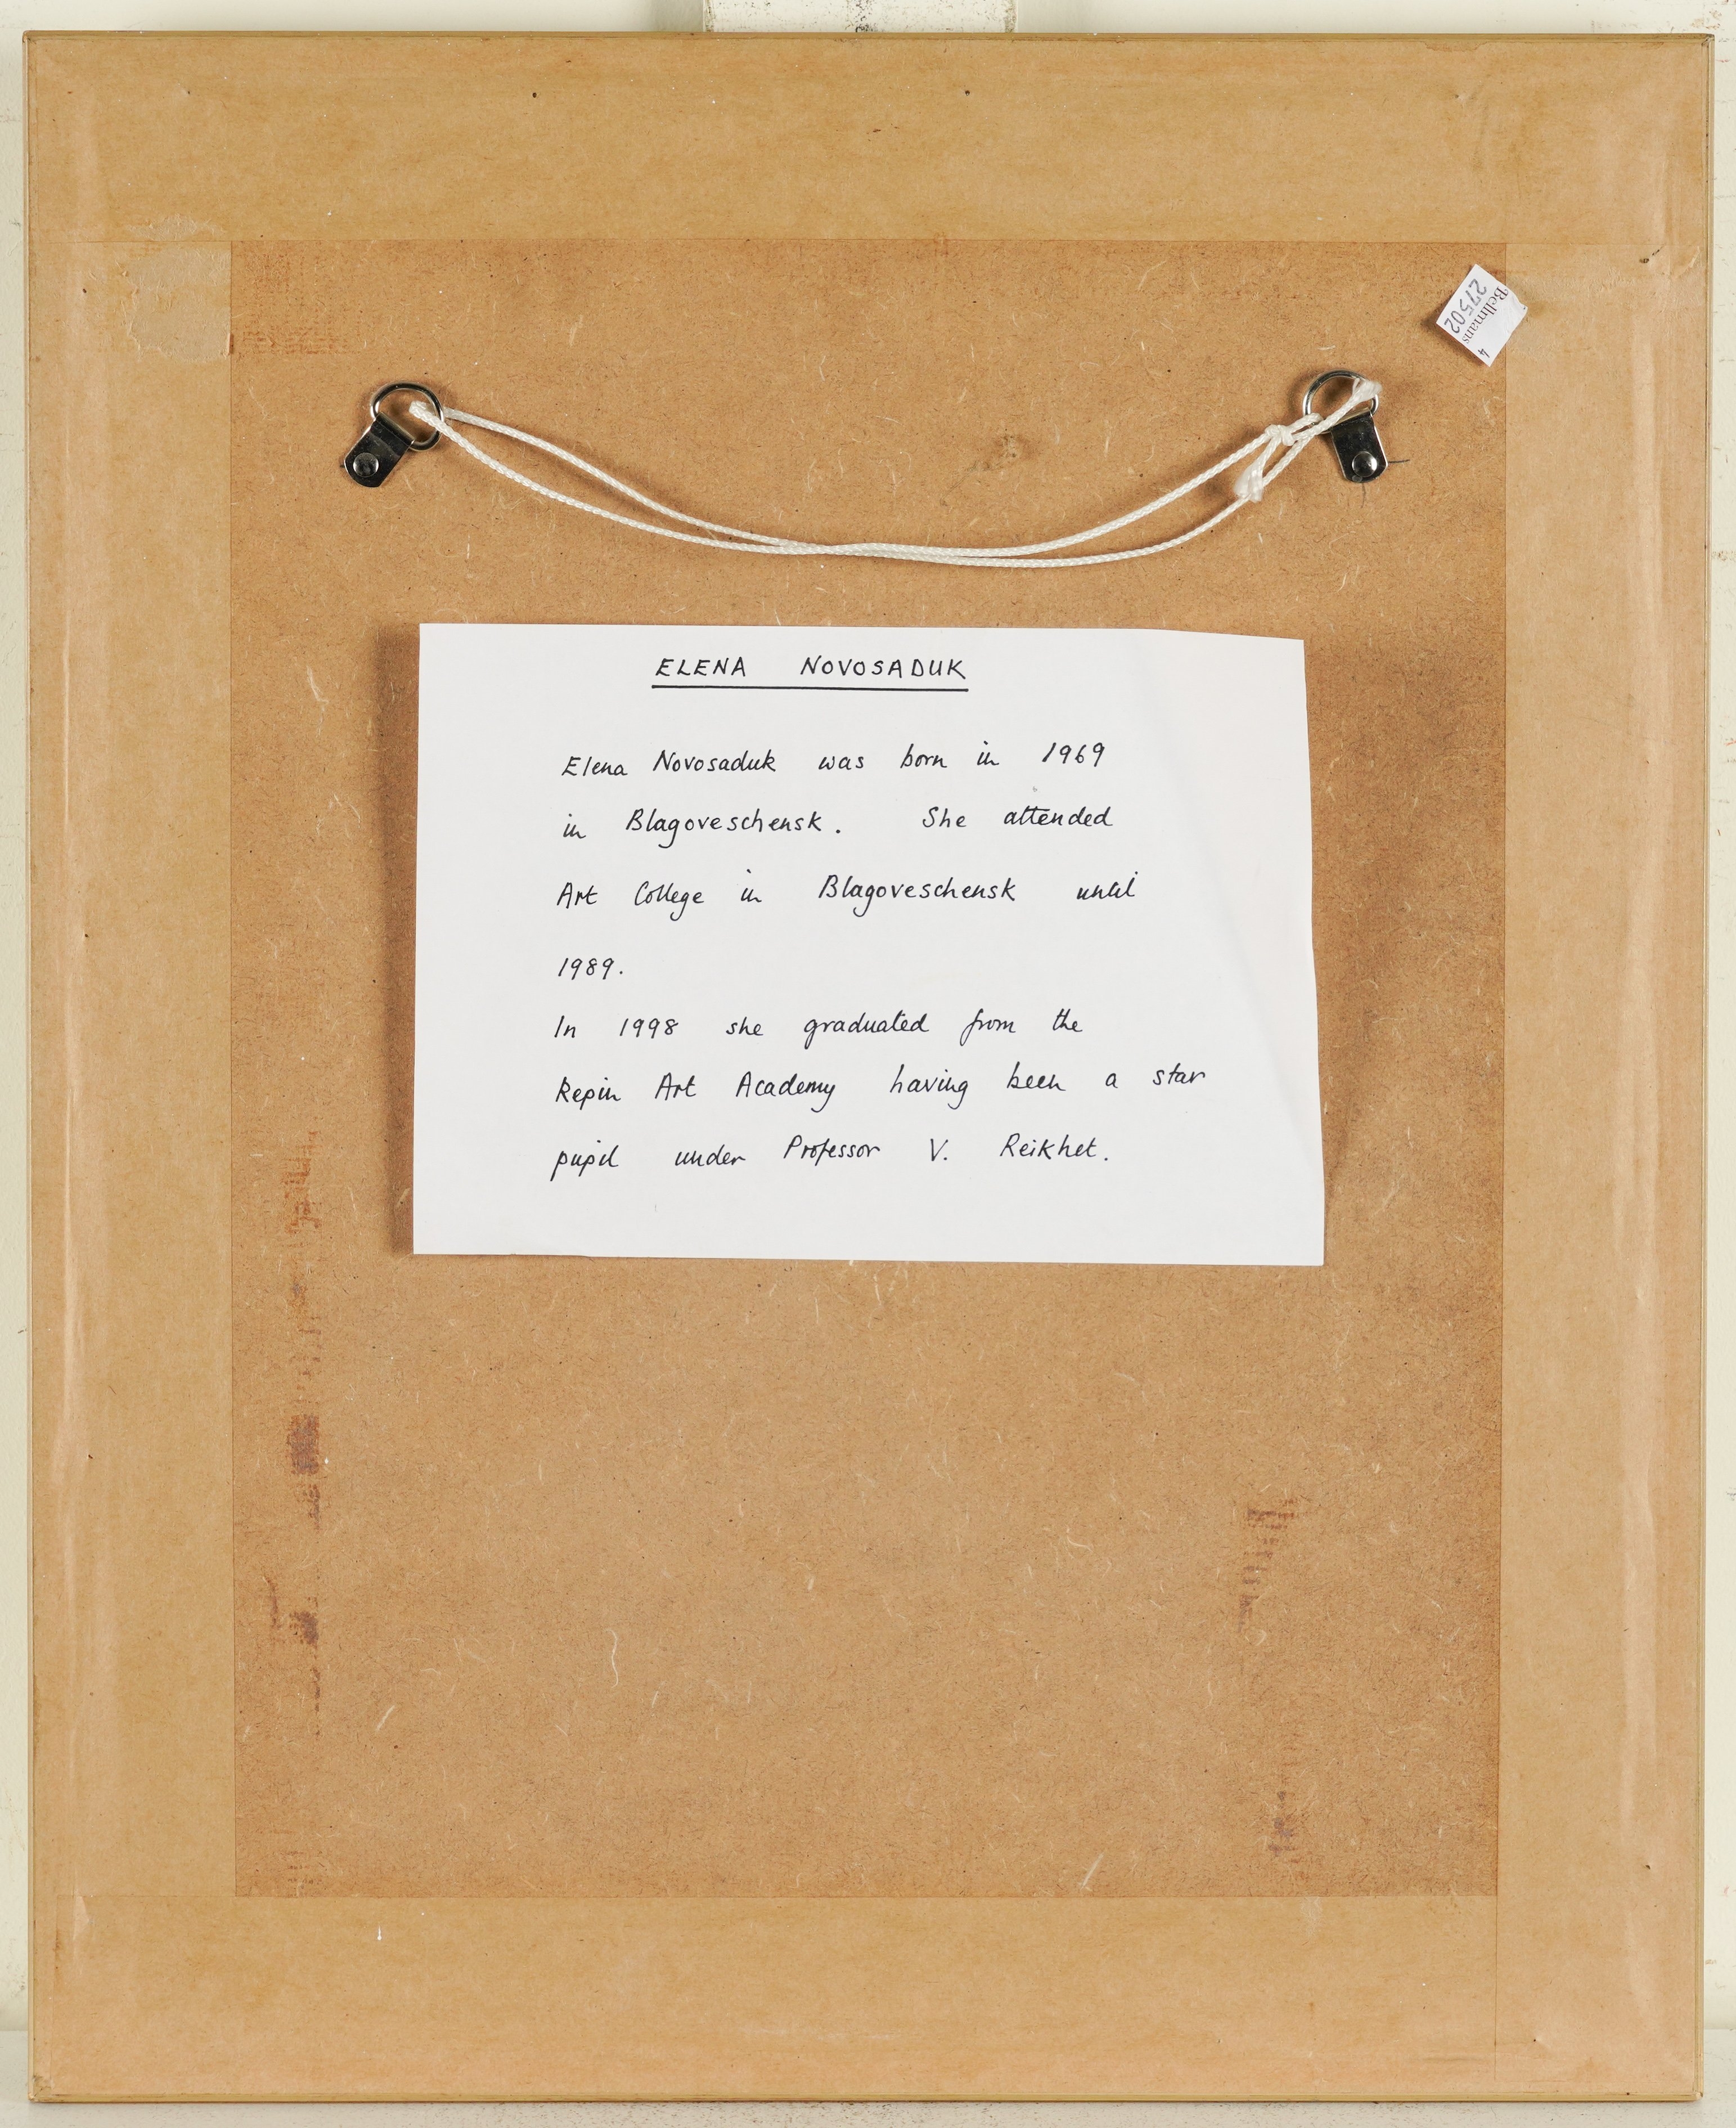 Bellmans 4
27502
ELENA NOVOSADUK
Elena Novosaduk was born in 1969
in Blagoveschensk. She attended
Art College in Blagoveschensk until
1989.
In 1998 she graduated from the
Repin Art Academy having been a star
pupil under Professor V. Reikhet.